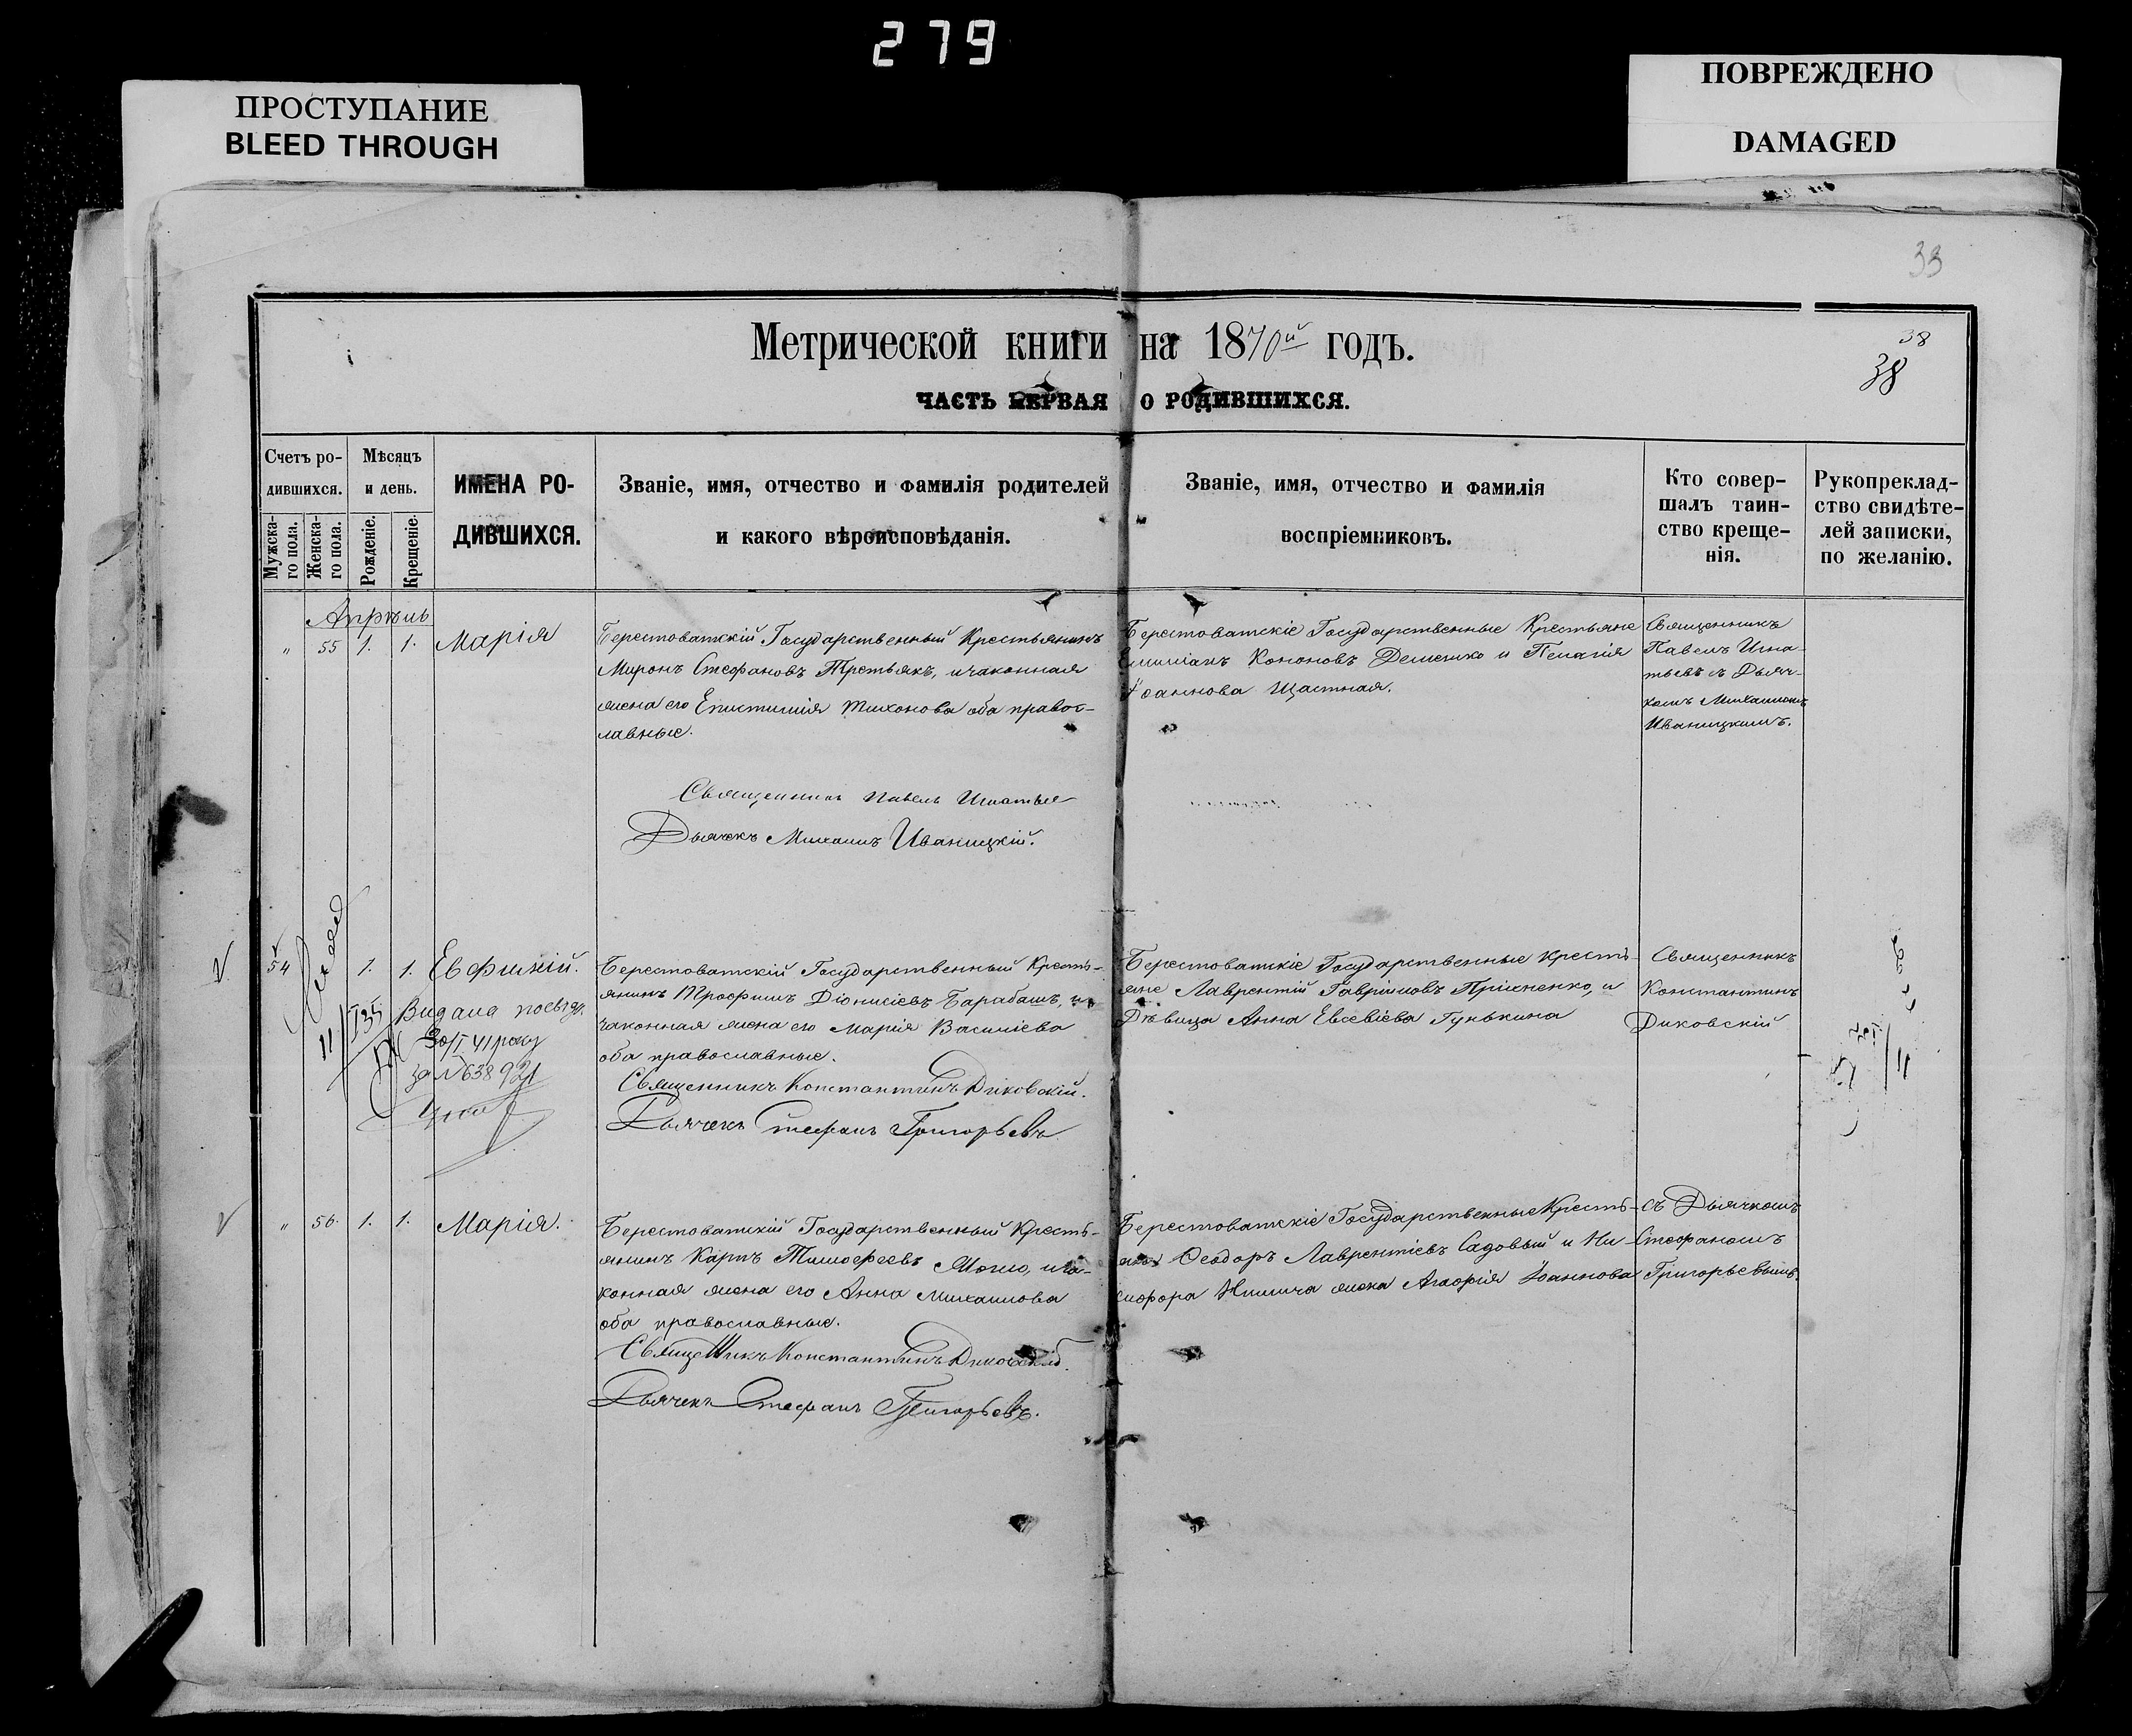 279
ПРОСТУПАНИЕ
BLEED THROUGH
ПОВРЕЖДЕНО
DAMAGED
33
Метрической книги на 1870й годъ.
38
38
ЧАСТЬ ПЕРВАЯ О РОДИВШИХСЯ.
Счетъ ро-
дившихся.
Мужска-
го пола.
Женска-
го пола.
Мѣсяцъ
и день.
Рожденіе.
Крещеніе.
ИМЕНА РО-
ДИВШИХСЯ.
Званіе, имя, отчество и фамилія родителей
и какого вѣроисповѣданія.
Званіе, имя, отчество и фамилія
воспріемниковъ.
Кто совер-
шалъ таин-
ство креще-
нія.
Рукоприклад-
ство свидѣте-
лей записки,
по желанію.
Апрѣль
" 55 1. 1. Марія
Берестоватскій Государственный Крестьянинъ
Миронъ Стефановъ Третьякъ, и законная
жена его Епистимія Тихонова оба правос-
лавные.
Священникъ Павелъ Игнатьев
Дьячекъ Михаилъ Иваницкій.
Берестоватскіе Государственные Крестьяне
Емиліанъ Кононовъ Демешко и Пелагія
Іоаннова Щастная.
Священникъ
Павелъ Игна-
тьевъ съ Дьяч-
комъ Михаиломъ
Иваницкимъ.
54 1. 1. Евфимій.
Видана
30/I 41 року
за №
11/I 35
Берестоватскій Государственный Кресть-
янинъ Трофимъ Діонисіевъ Барабашъ, и
законная жена его Марія Василіева
оба православные.
Священникъ Константинъ Диковскій.
Дьячекъ Стефанъ Григорьевъ
Берестоватскіе Государственные Кресть-
яне Лаврентій Гавріиловъ Пріхненко, и
Дѣвица Анна Евсевіева Гунькина
Священникъ
Константинъ
Диковскій
" 56. 1. 1. Марія.
Берестоватскій Государственный Кресть-
янинъ Карпъ Тимофеевъ Могло, и за-
конная жена его Анна Михаилова
оба православные.
Священникъ Константинъ Диковскій.
Дьячекъ Стефанъ Григорьевъ.
Берестоватскіе Государственные Кресть-
яне Ѳеодоръ Лаврентіевъ Садовый и Ни-
кифора Жилича жена Агафія Іоаннова
съ Дьячкомъ
Стефаномъ
Григорьевымъ.